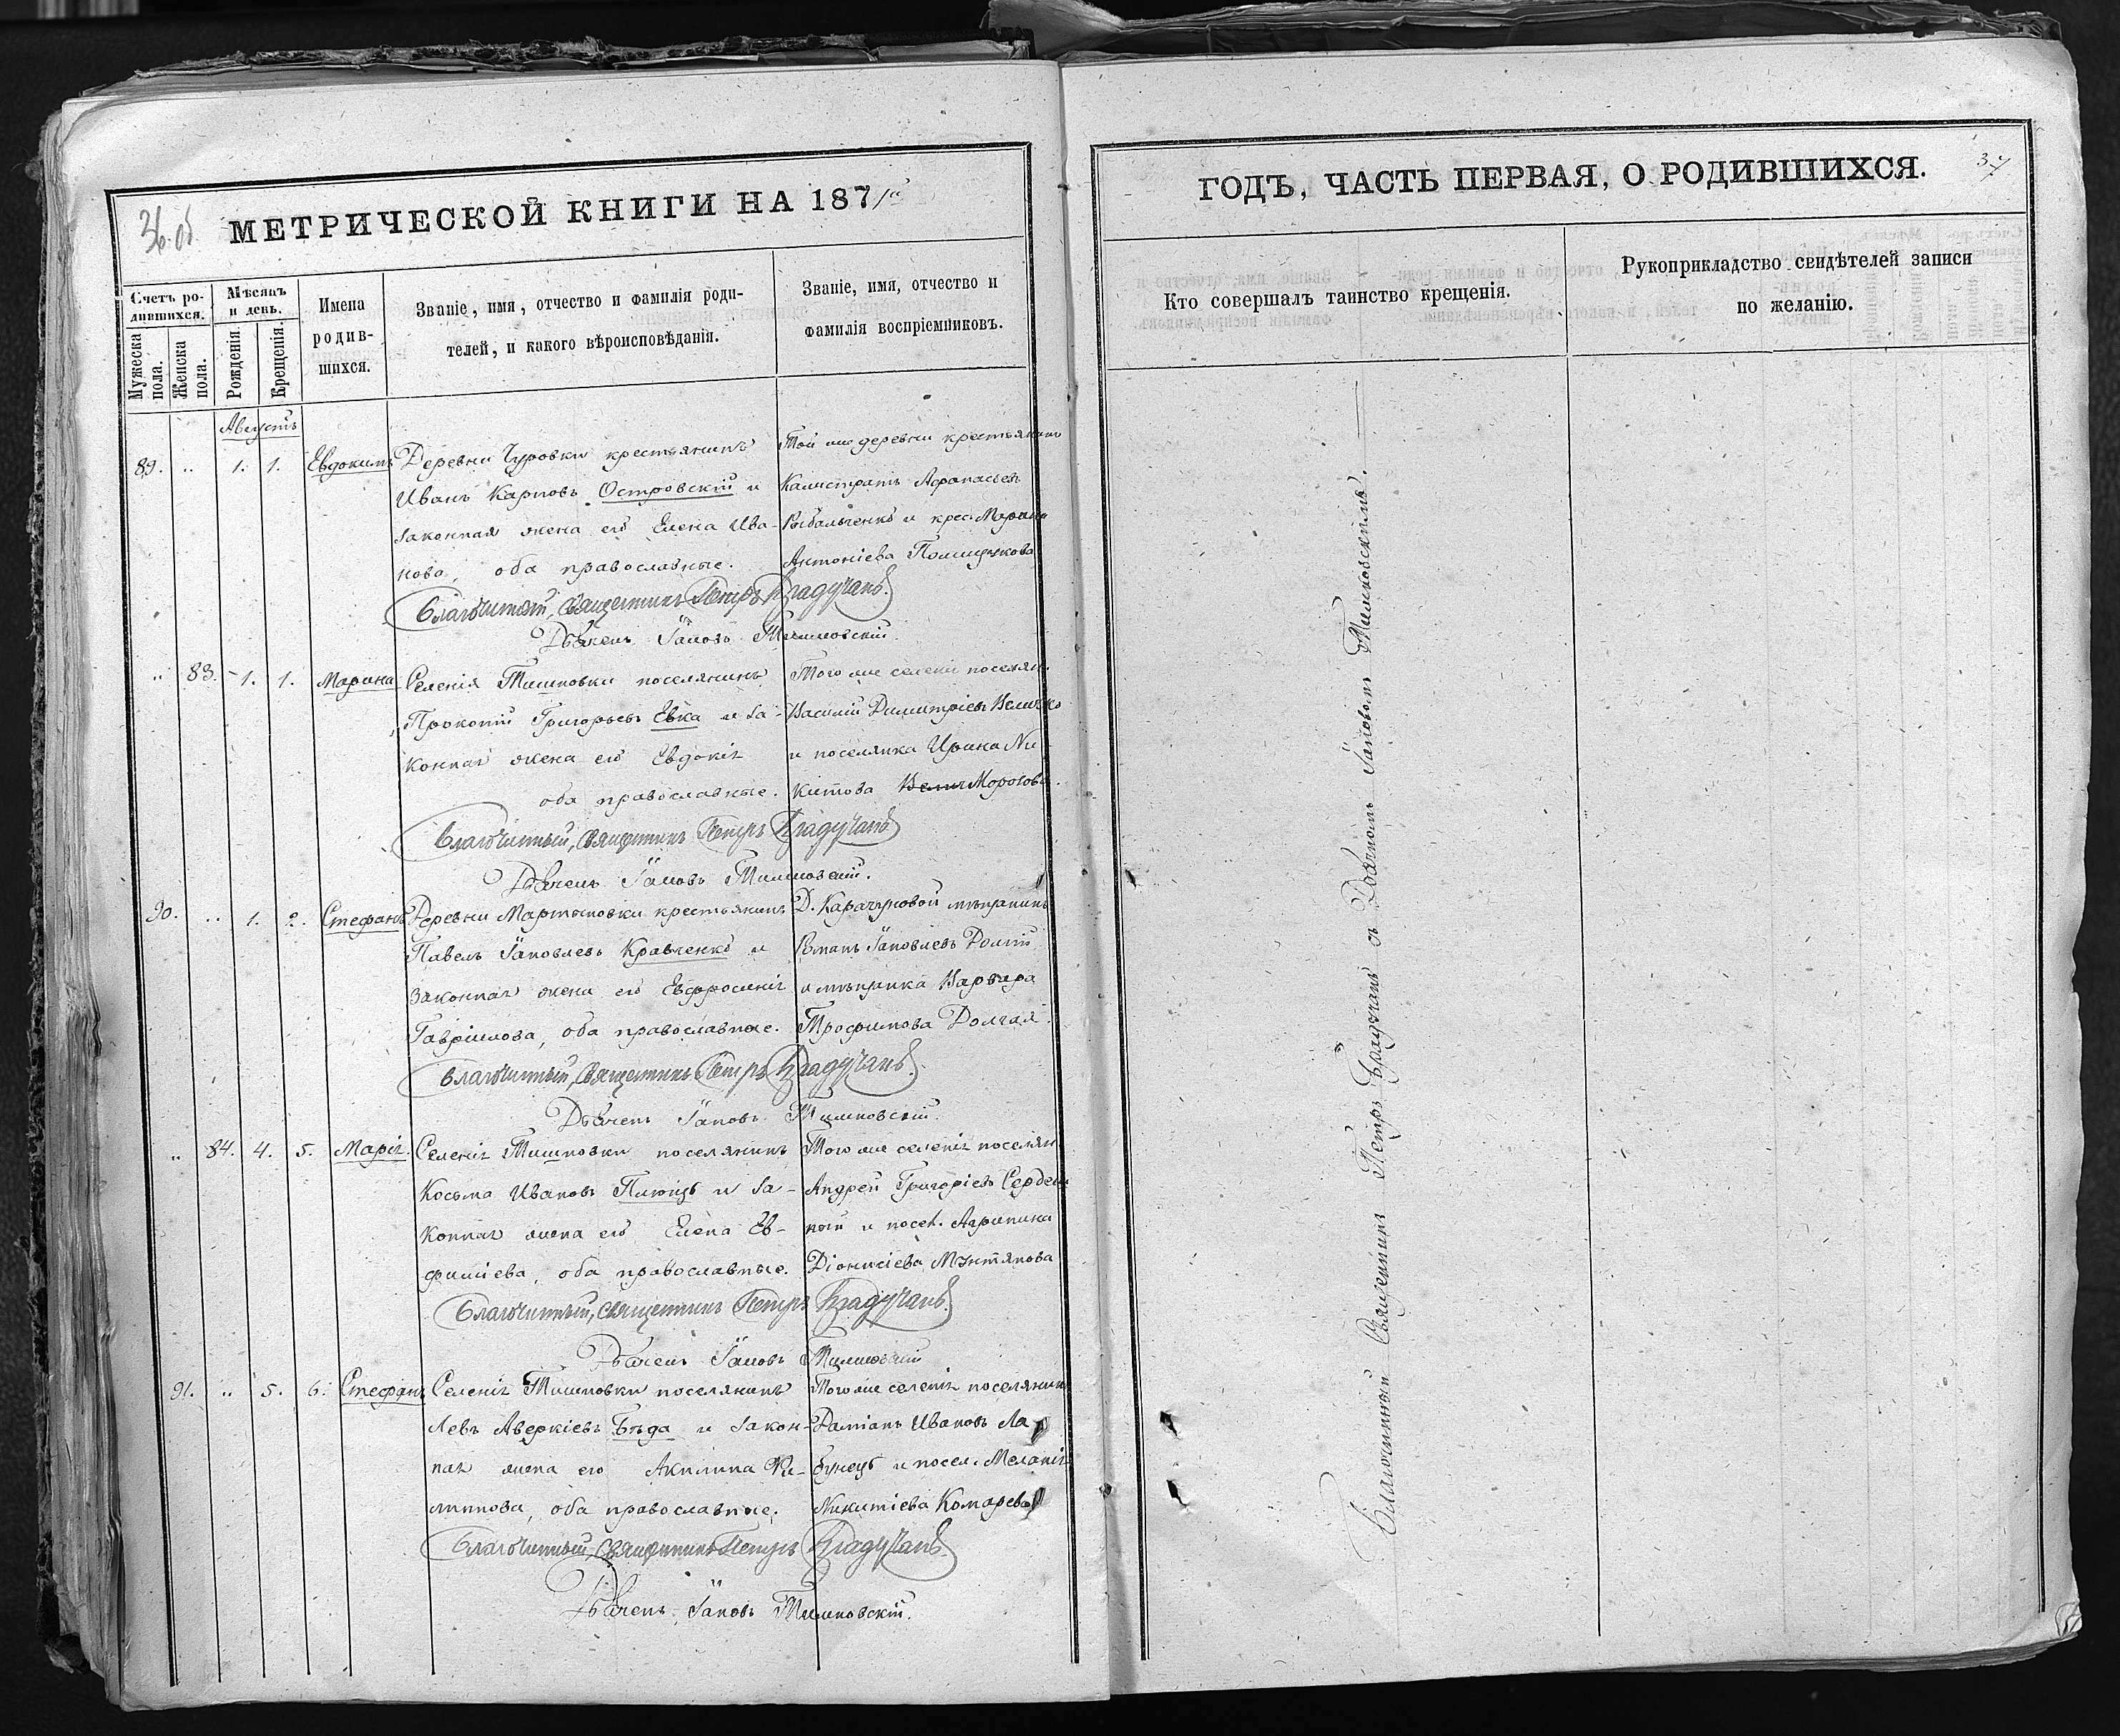 36. об.
МЕТРИЧЕСКОЙ КНИГИ НА 1871й
Счетъ ро-
дившихся.
Мужеска пола.
Женска пола.
Мѣсяцъ
и день.
Рожденія
Крещенія.
Имена
родив-
шихся.
Званіе, имя, отчество и фамилія роди-
телей, и какого вѣроисповѣданія.
Званіе, имя, отчество и
фамилія воспріемниковъ.
Августъ
89. „ 1. 1. Евдокимъ
Деревни Чуровки крестьянинъ
Иванъ Карповъ Островскій и
законная жена его Елена Ива-
нова, оба православные.
Той же деревни крестьянинъ
Калистратъ Афанасьевъ
Рыбальченко и крес. Марина
Антоніева
Благочинный, Священникъ Петръ Брадучанъ.
Дьячекъ Іаковъ Тимковскій.
„ 83. 1. 1. Марина
Селенія Тишковки поселянинъ
Прокопій Григорьевъ Евка и за-
конная жена его Евдокія
оба православные.
Того же селенія поселян.
Василій Димитріевъ Величко
и поселянка Ирина Ни-
китова Морозова.
Благочинный, Священникъ Петръ Брадучанъ
Дьячекъ Іаковъ Тимковскій.
90. „ 1. 2. Стефанъ
Деревни Мартыновки крестьянинъ
Павелъ Іаковлевъ Кравченко и
законная жена его Евфросинія
Гавріилова, оба православные.
Д. Карачуновой мѣщанинъ
Романъ Іаковлевъ Долгій
и мѣщанка Варвара
Трофимова Долгая.
Благочинный, Священникъ Петръ Брадучанъ.
Дьячекъ Іаковъ Тимковскій.
„ 84. 4. 5. Марія
Селенія Тишковки поселянинъ
Косьма Ивановъ и за-
конная жена его Елена Ев-
фиміева, оба православные.
Того же селенія поселян.
Андрей Григоріевъ
и посел. Агрипина
Діонисіева Мунтянова
Благочинный, Священникъ Петръ Брадучанъ.
Дьячекъ Іаковъ Тимковскій
91. „ 5. 6. Стефанъ
Селенія Тишковки поселянинъ
Левъ Аверкіевъ Бѣда и закон-
ная жена его Акилина Фи-
липпова, оба православные.
Того же селенія поселянинъ
Даміанъ Ивановъ Ла-
бунецъ и посел. Меланія
Никитіева Комарева
Благочинный, Священникъ Петръ Брадучанъ.
Дьячекъ Іаковъ Тимковскій.
ГОДЪ, ЧАСТЬ ПЕРВАЯ, О РОДИВШИХСЯ.
37
Кто совершалъ таинство крещенія.
Рукоприкладство свидѣтелей записи
по желанію.
Благочинный Священникъ Петръ Брадучанъ съ Дьячкомъ Іаковомъ Тимковскимъ.